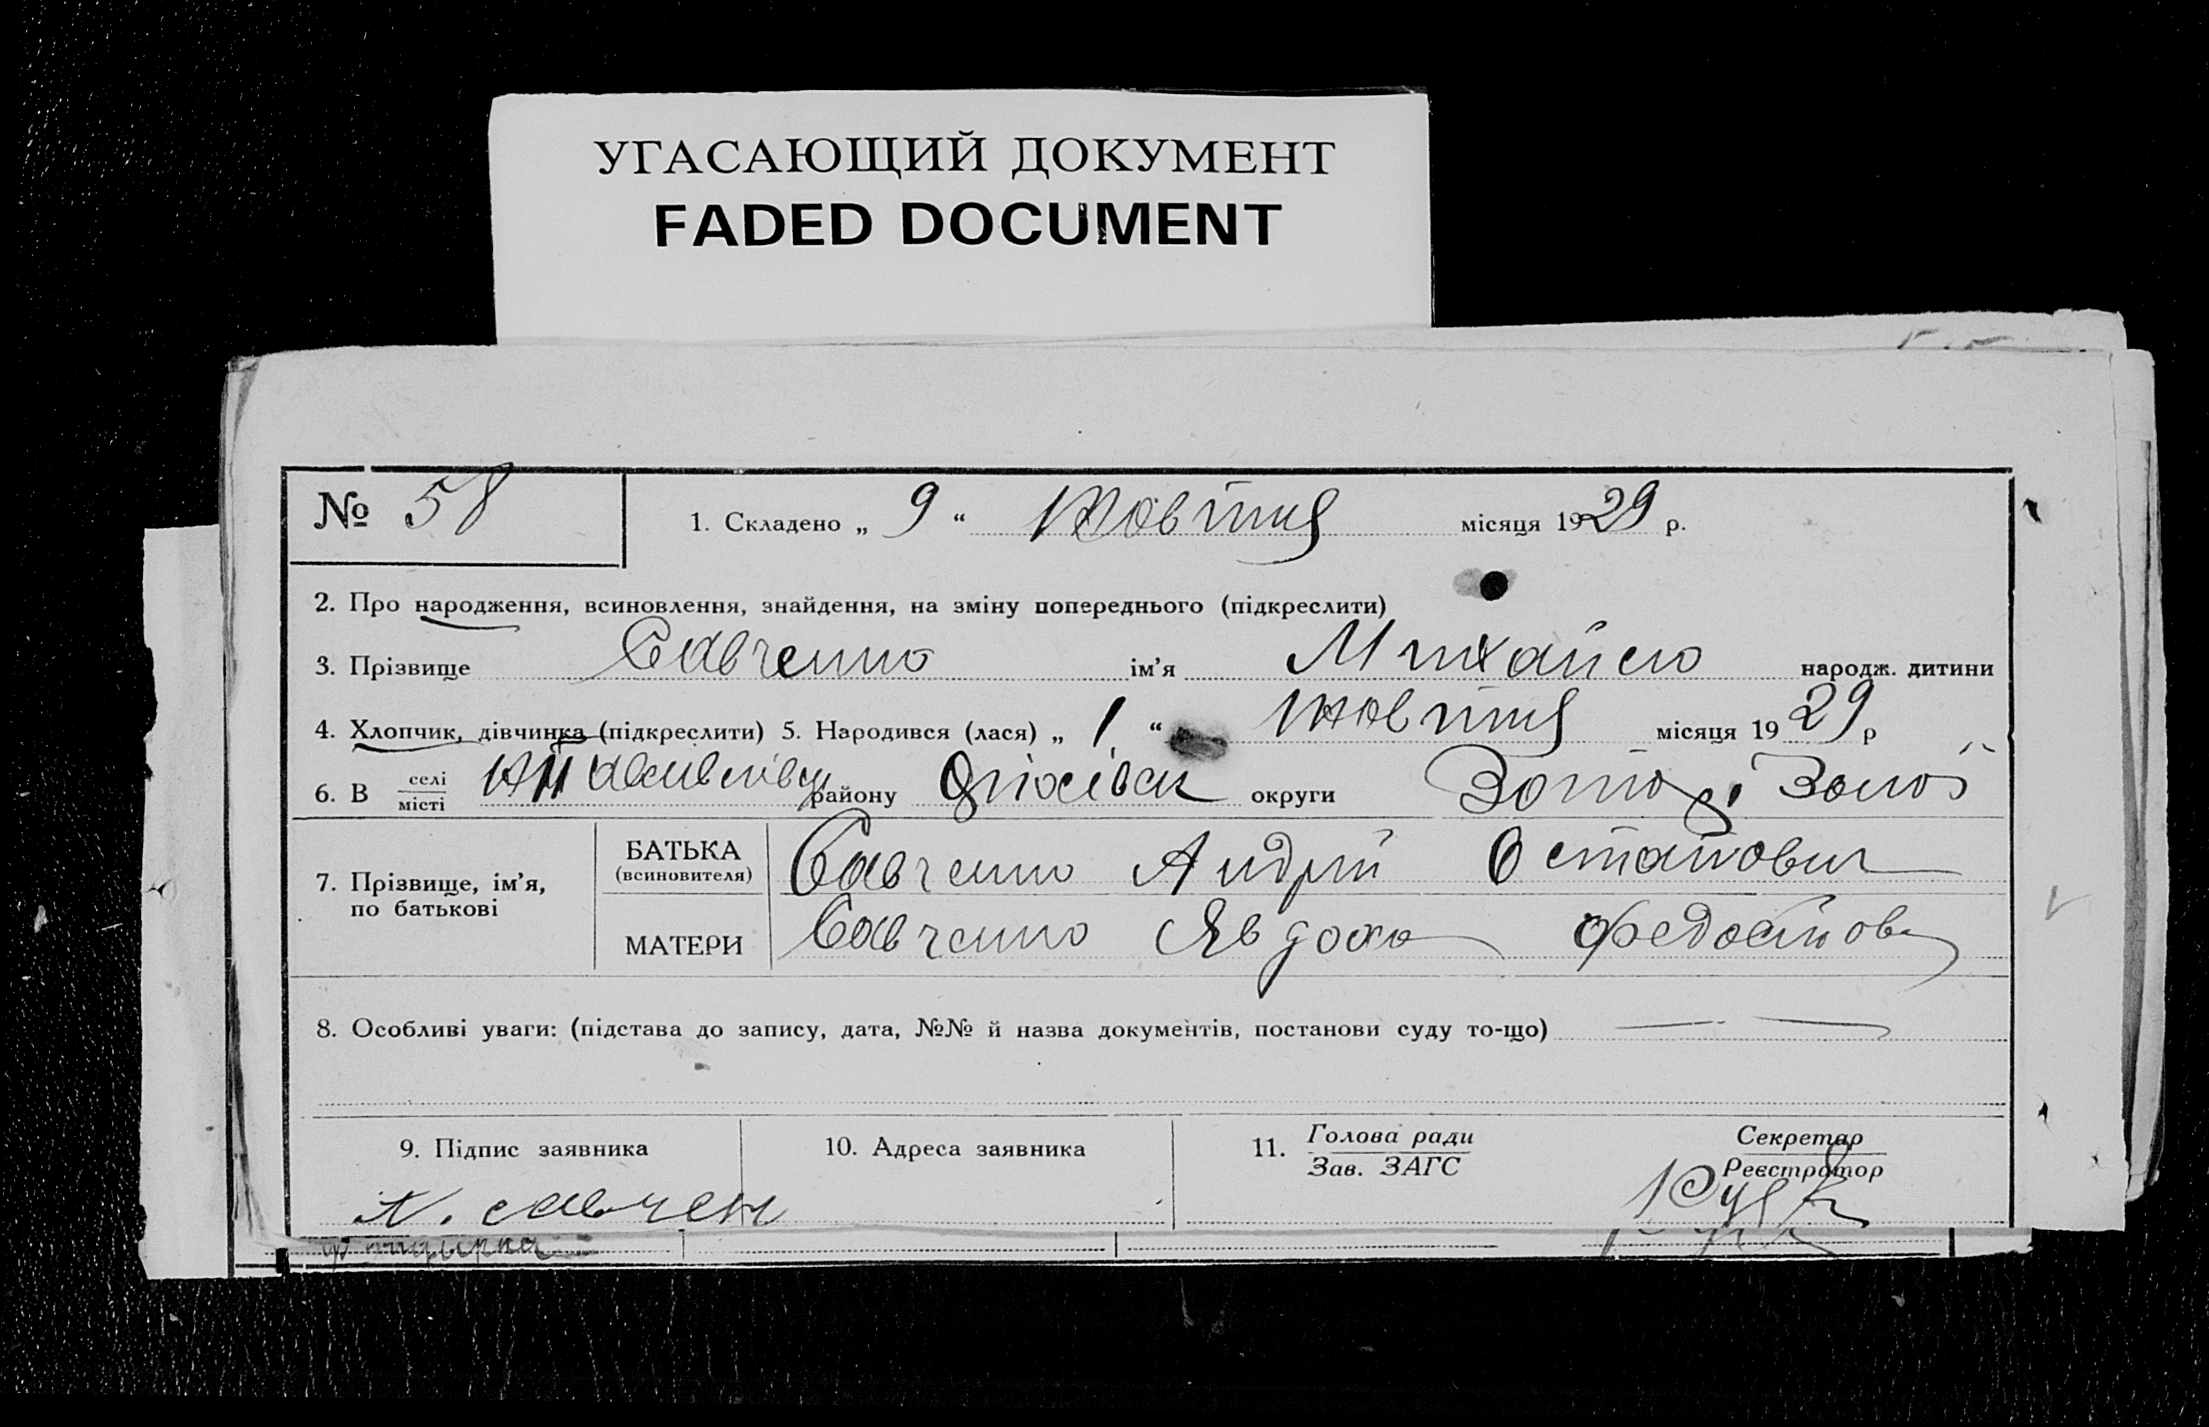 УГАСАЮЩИЙ ДОКУМЕНТ
FADED DOCUMENT
№ 58
1. Складено „ 9 “ Жовтня місяця 1929 р.
2. Про народження, всиновлення, знайдення, на зміну попереднього (підкреслити)
3. Прізвище Савченко ім’я Михайло народж. дитини
4. Хлопчик, дівчинка (підкреслити) 5. Народився (лася) „ 1 “ Жовтня місяця 1929 р
6. В селі місті району округи
7. Прізвище, ім’я, по батькові
БАТЬКА (всиновителя) Савченко Андрій Остапович
МАТЕРИ Савченко Явдоха Федосіїов
8. Особливі уваги: (підстава до запису, дата, №№ й назва документів, постанови суду то-що)
9. Підпис заявника
10. Адреса заявника
11. Голова ради Зав. ЗАГС
Секретар Реєстратор
савчен